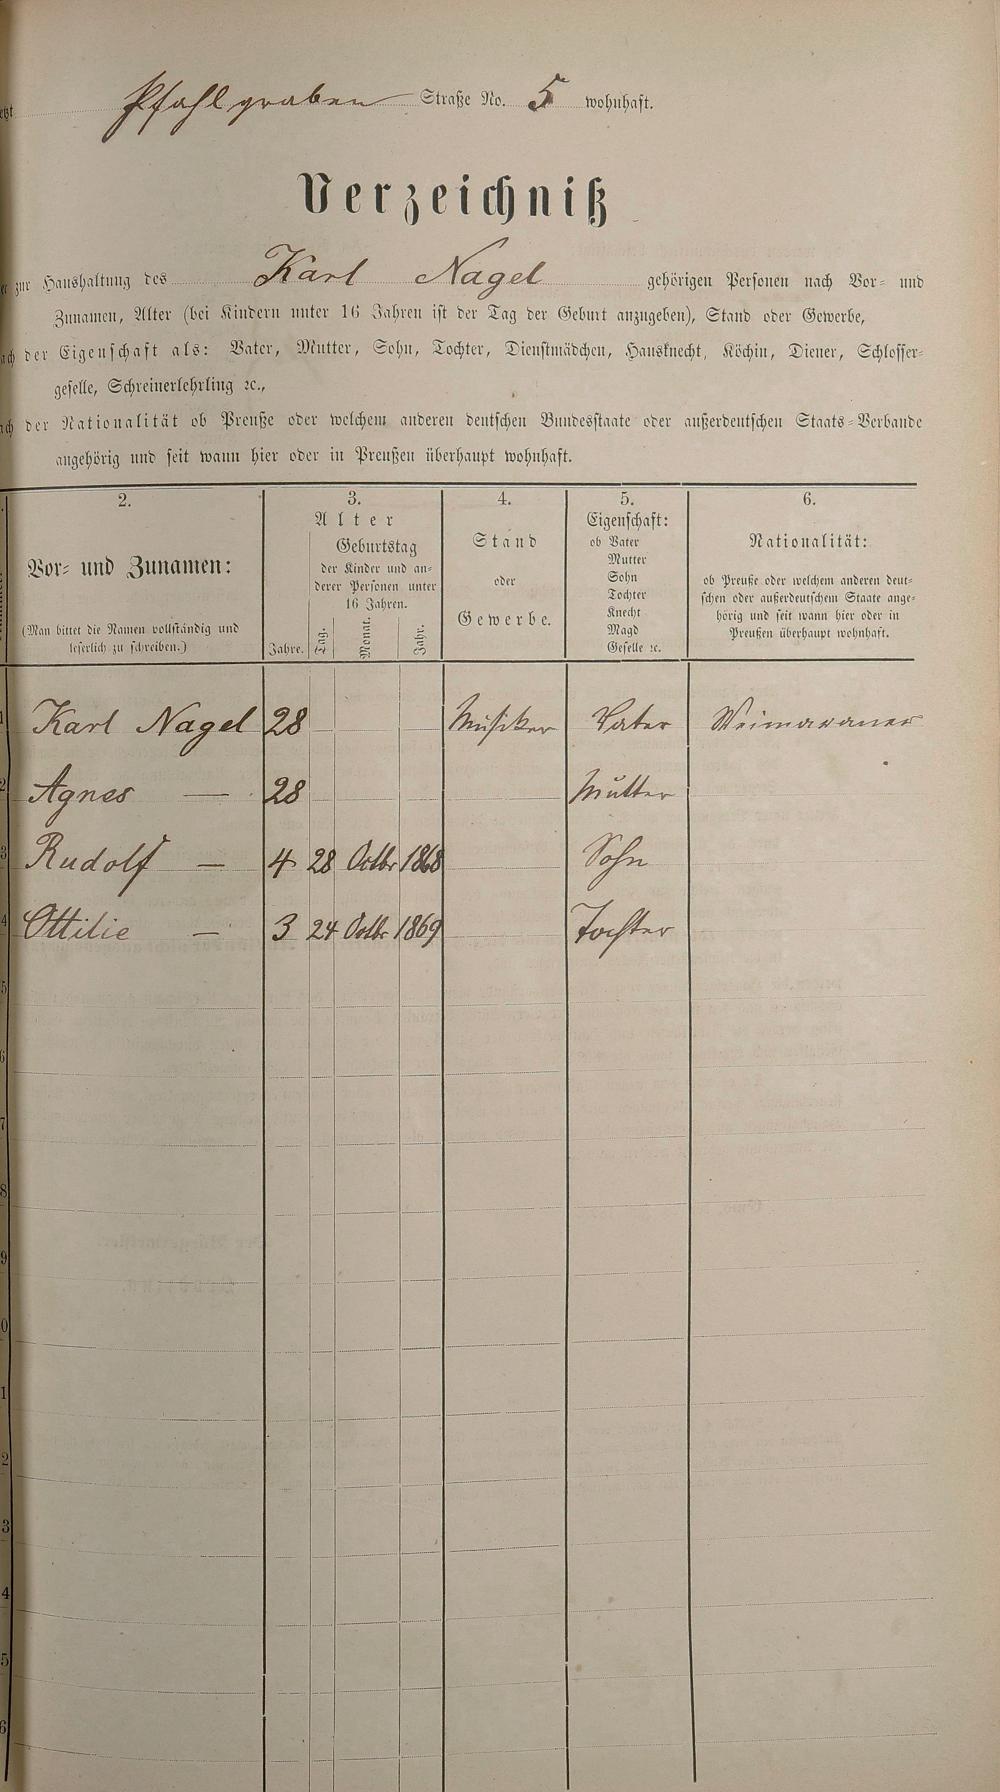 Pfahlgraben Straße No. 5 wohnhaft.
Verzeichniß
zur Haushaltung des Karl Nagel gehörigen Personen nach Vor- und
Zunamen, Alter (bei Kindern unter 16 Jahren ist der Tag der Geburt anzugeben), Stand oder Gewerbe,
der Eigenschaft als: Vater, Mutter, Sohn, Tochter, Dienstmädchen, Hausknecht, Köchin, Diener, Schlosser-
geselle, Schreinerlehrling ꝛc.,
der Nationalität ob Preuße oder welchem anderen deutschen Bundesstaate oder außerdeutschen Staats-Verbande
angehörig und seit wann hier oder in Preußen überhaupt wohnhaft.
2.
Vor- und Zunamen:
(Man bittet die Namen vollständig und
leserlich zu schreiben.)
3.
Alter
Geburtstag
der Kinder und an-
derer Personen unter
16 Jahren.
Jahre. Tag. Monat. Jahr.
4.
Stand
oder
Gewerbe.
5.
Eigenschaft:
ob Vater
Mutter
Sohn
Tochter
Knecht
Magd
Geselle ꝛc.
6.
Nationalität:
ob Preuße oder welchem anderen deut-
schen oder außerdeutschem Staate ange-
hörig und seit wann hier oder in
Preußen überhaupt wohnhaft.
1 Karl Nagel 28 Musiker Vater Weimaraner
2 Agnes — 28 Mutter
3 Rudolf — 4 28 Octbr 1868 Sohn
4 Ottilie — 3 24 Octbr 1869 Tochter
5
6
7
8
9
0
1
2
3
4
5
6